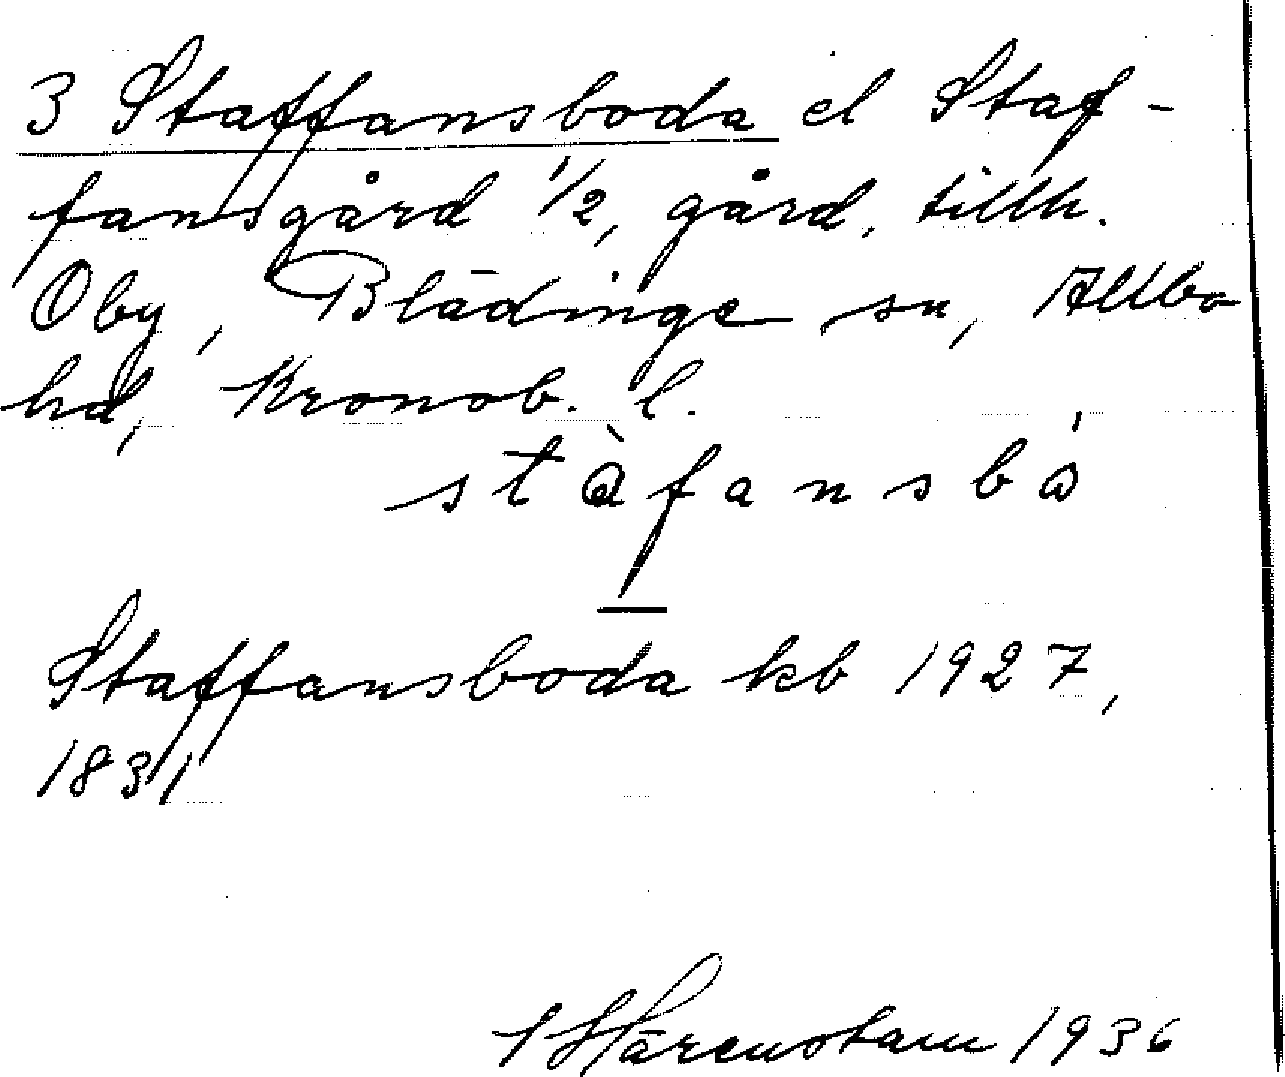 3 Staffansboda el Staf-
fansgård 1/2, gård, tillh.
Oby, Blädinge sn, Allbo
hd, Kronob. l.
stàfansbå
Staffansboda kb 1927,
1831
Härenstam 1936